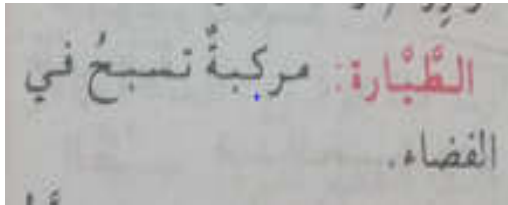 الطَّيَّارة: مركبةٌ تسبحُ في
الفضاء.